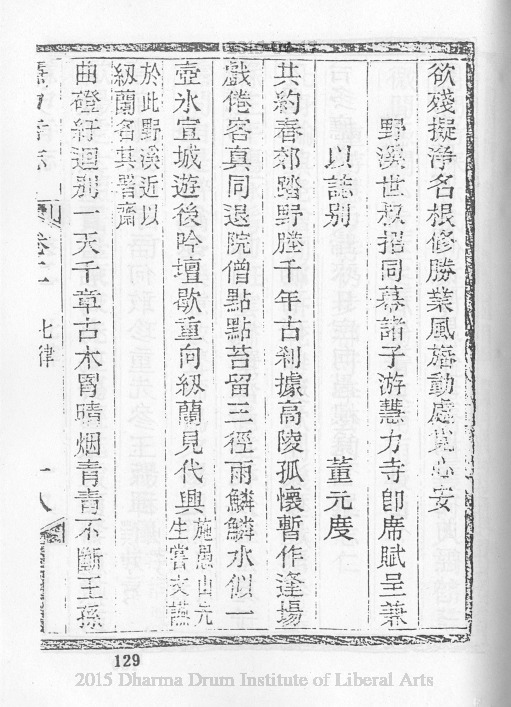 欲殘擬淨名根修勝業風旛動處覓心安
野溪世叔招同幕諸子游慧力寺卽席賦呈兼
以誌别
董元度
共約春郊踏野塍千年古刹據高陵孤懷暫作逢場
戲倦客真同退院僧點點苔留三徑雨鱗鱗水似一
壺氷宣城遊後吟壇歇重向紉蘭見代興施愚山先
生嘗文讌
於此野溪近以
紉蘭名其署齋
曲磴紆迴别一天千章古木罥晴烟青青不斷王孫
慧力寺志
卷二
七律
十八
129
2015 Dharma Drum Institute of Liberal Arts